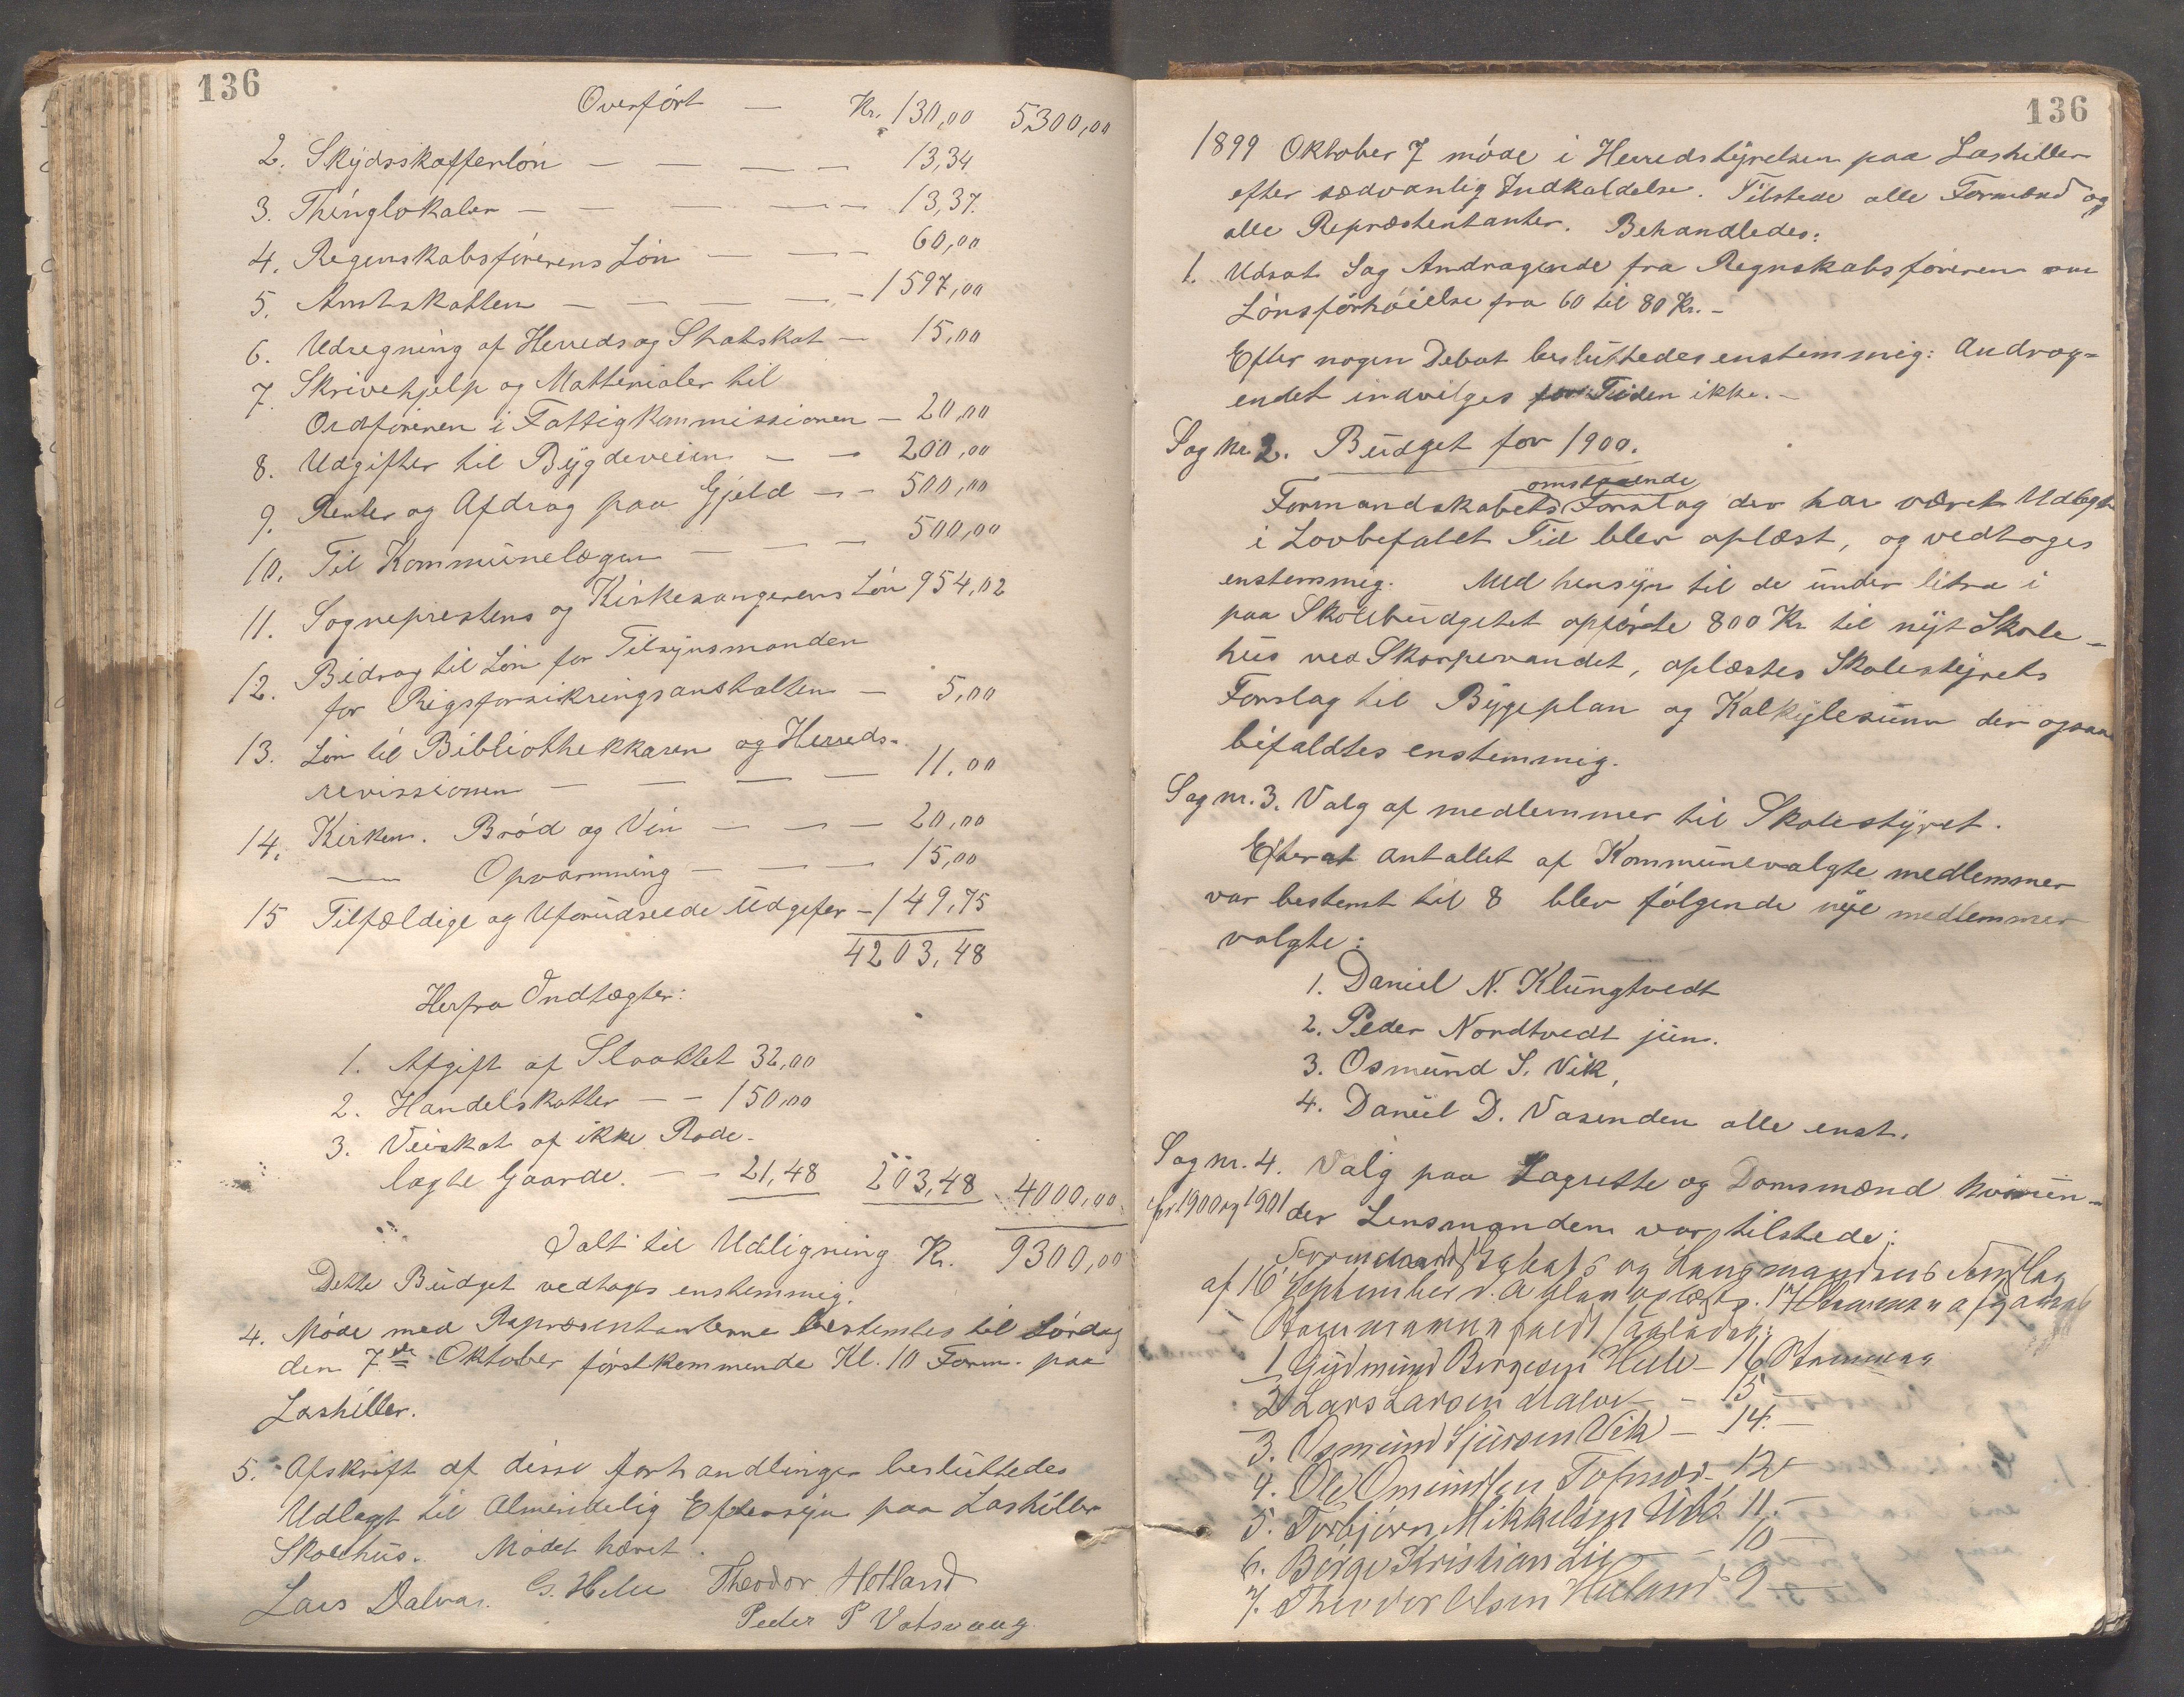 136
Overført — Kr. 130,00 5300,00
2. Skydsskafferløn — — — 13,34
3. Thinglokaler — — — — 13,37.
4. Regenskabsførerens Løn — — — 60,00
5. Amtskatten — — — — 1597,00
6. Udregning af Herreds og Statskat — 15,00
7. Skrivehjelp og Matterialer til
Ordføreren i Fattigkommissionen — 20,00
8. Udgifter til Bygdeveien — — 200,00
9. Renter og Afdrag paa Gjeld — — 500,00
10. Til Kommunelægen — — — 500,00
11. Sogneprestens og Kirkesangerens Løn 954,02
12. Bidrag til Løn for Tilsynsmanden
for Rigsforsikringsanstalten — 5,00
13. Løn til Bibliothekkaren og Herreds-
revissionen — — — — 11,00
14. Kirken. Brød og Vin — — — 20,00
— Opvarmning — — — 15,00
15 Tilfældige og Uforudseede Udgifer — 149,75
4203,48
Herfra Indtægter:
1. Afgift af Slaattet 32,00
2. Handelskatter — — 150,00
3. Veiskat af ikke Rode-
lagte Gaarde. — — 21,48 203,48 4000,00
Ialt til Udligning Kr. 9300,00
Dette Budget vedtages enstemmig.
4. Møde med Repræsentanterne bestemtes til Lørdag
den 7de Oktober førstkommende Kl. 10 Form. paa
Lashiller.
5. Afskrift af disse forhandlinger besluttedes
Udlagt til Almindelig Eftersyn paa Lashiller
Skolehus. Mødet hævet.
Lars Dalva. G. Hele Theodor Hølland
Peder P Vatsvaag
136
1899 Oktober 7 møde i Herredstyrelsen paa Lashiller
efter sædvanlig Indkaldelse. Tilstede alle Formænd og
alle Repræsentanter. Behandledes:
1. Udsat Sag Andragende fra Regnskabsføreren om
Lønsforhøielse fra 60 til 80 Kr. —
Efter nogen Debat besluttedes enstemmig: Andrag-
endet indvilges for Tiden ikke. —
Sag nr 2. Budget for 1900.
omstaaende
Formandskabets Forslag der har været Udlagt
i Lovbefalet Tid blev oplæst, og vedtoges
enstemmig. Med hensyn til de under litra i
paa Skolebudgetet opførte 800 Kr til nyt Skole-
hus ved Skorpevandet, oplæstes Skolestyrets
Forslag til Bygeplan og Kalkylesum der ogsaa
bifaldtes enstemmig.
Sag nr. 3. Valg af medlemmer til Skolestyret.
Efterat antallet af Kommunevalgte medlemmer
var bestemt til 8 blev følgende nye medlemmer
valgte:
1. Daniel N. Klungtvedt
2. Peder Nordtvedt jun.
3. Osmund S. Vik,
4. Daniel D. Vasenden alle enst.
Sag nr. 4. Valg paa Lagrette og Domsmænd hvorun-
for 1900 og 1901 der Lensmanden var tilstede:
Formandskabets og Lensmandens Forslag
af 16 September d. A blev oplæst. 17
1 Gudmund Børgesen Hele — 16 Stemmer
2 Lars Larsen Dalva — 15 —
3. Osmund Sjursen Vik — 14. —
4. Ole Omundsen 12
5. Torbjørn Mikkelsen 11. —
6. Børge Kristian Lie — 10 —
7. Theodor Olsen 9 —